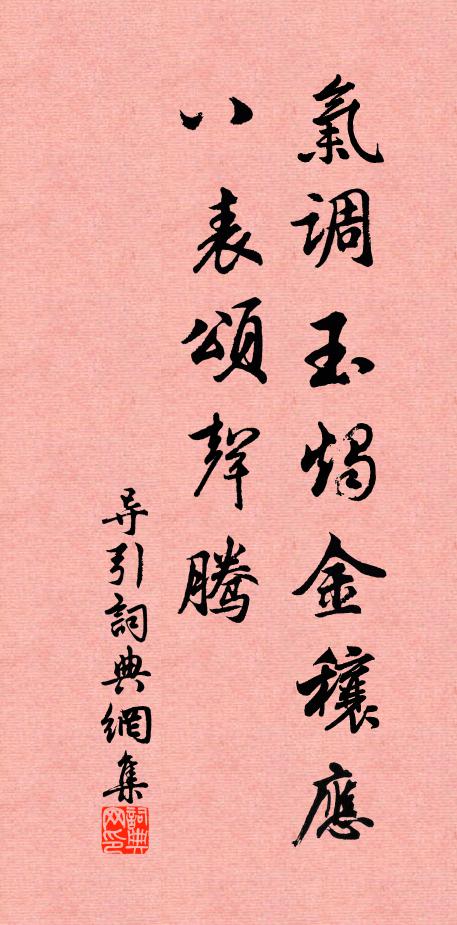 氣調玉燭金穰應
八表頌聲騰
导引詞典網集
詞典網印